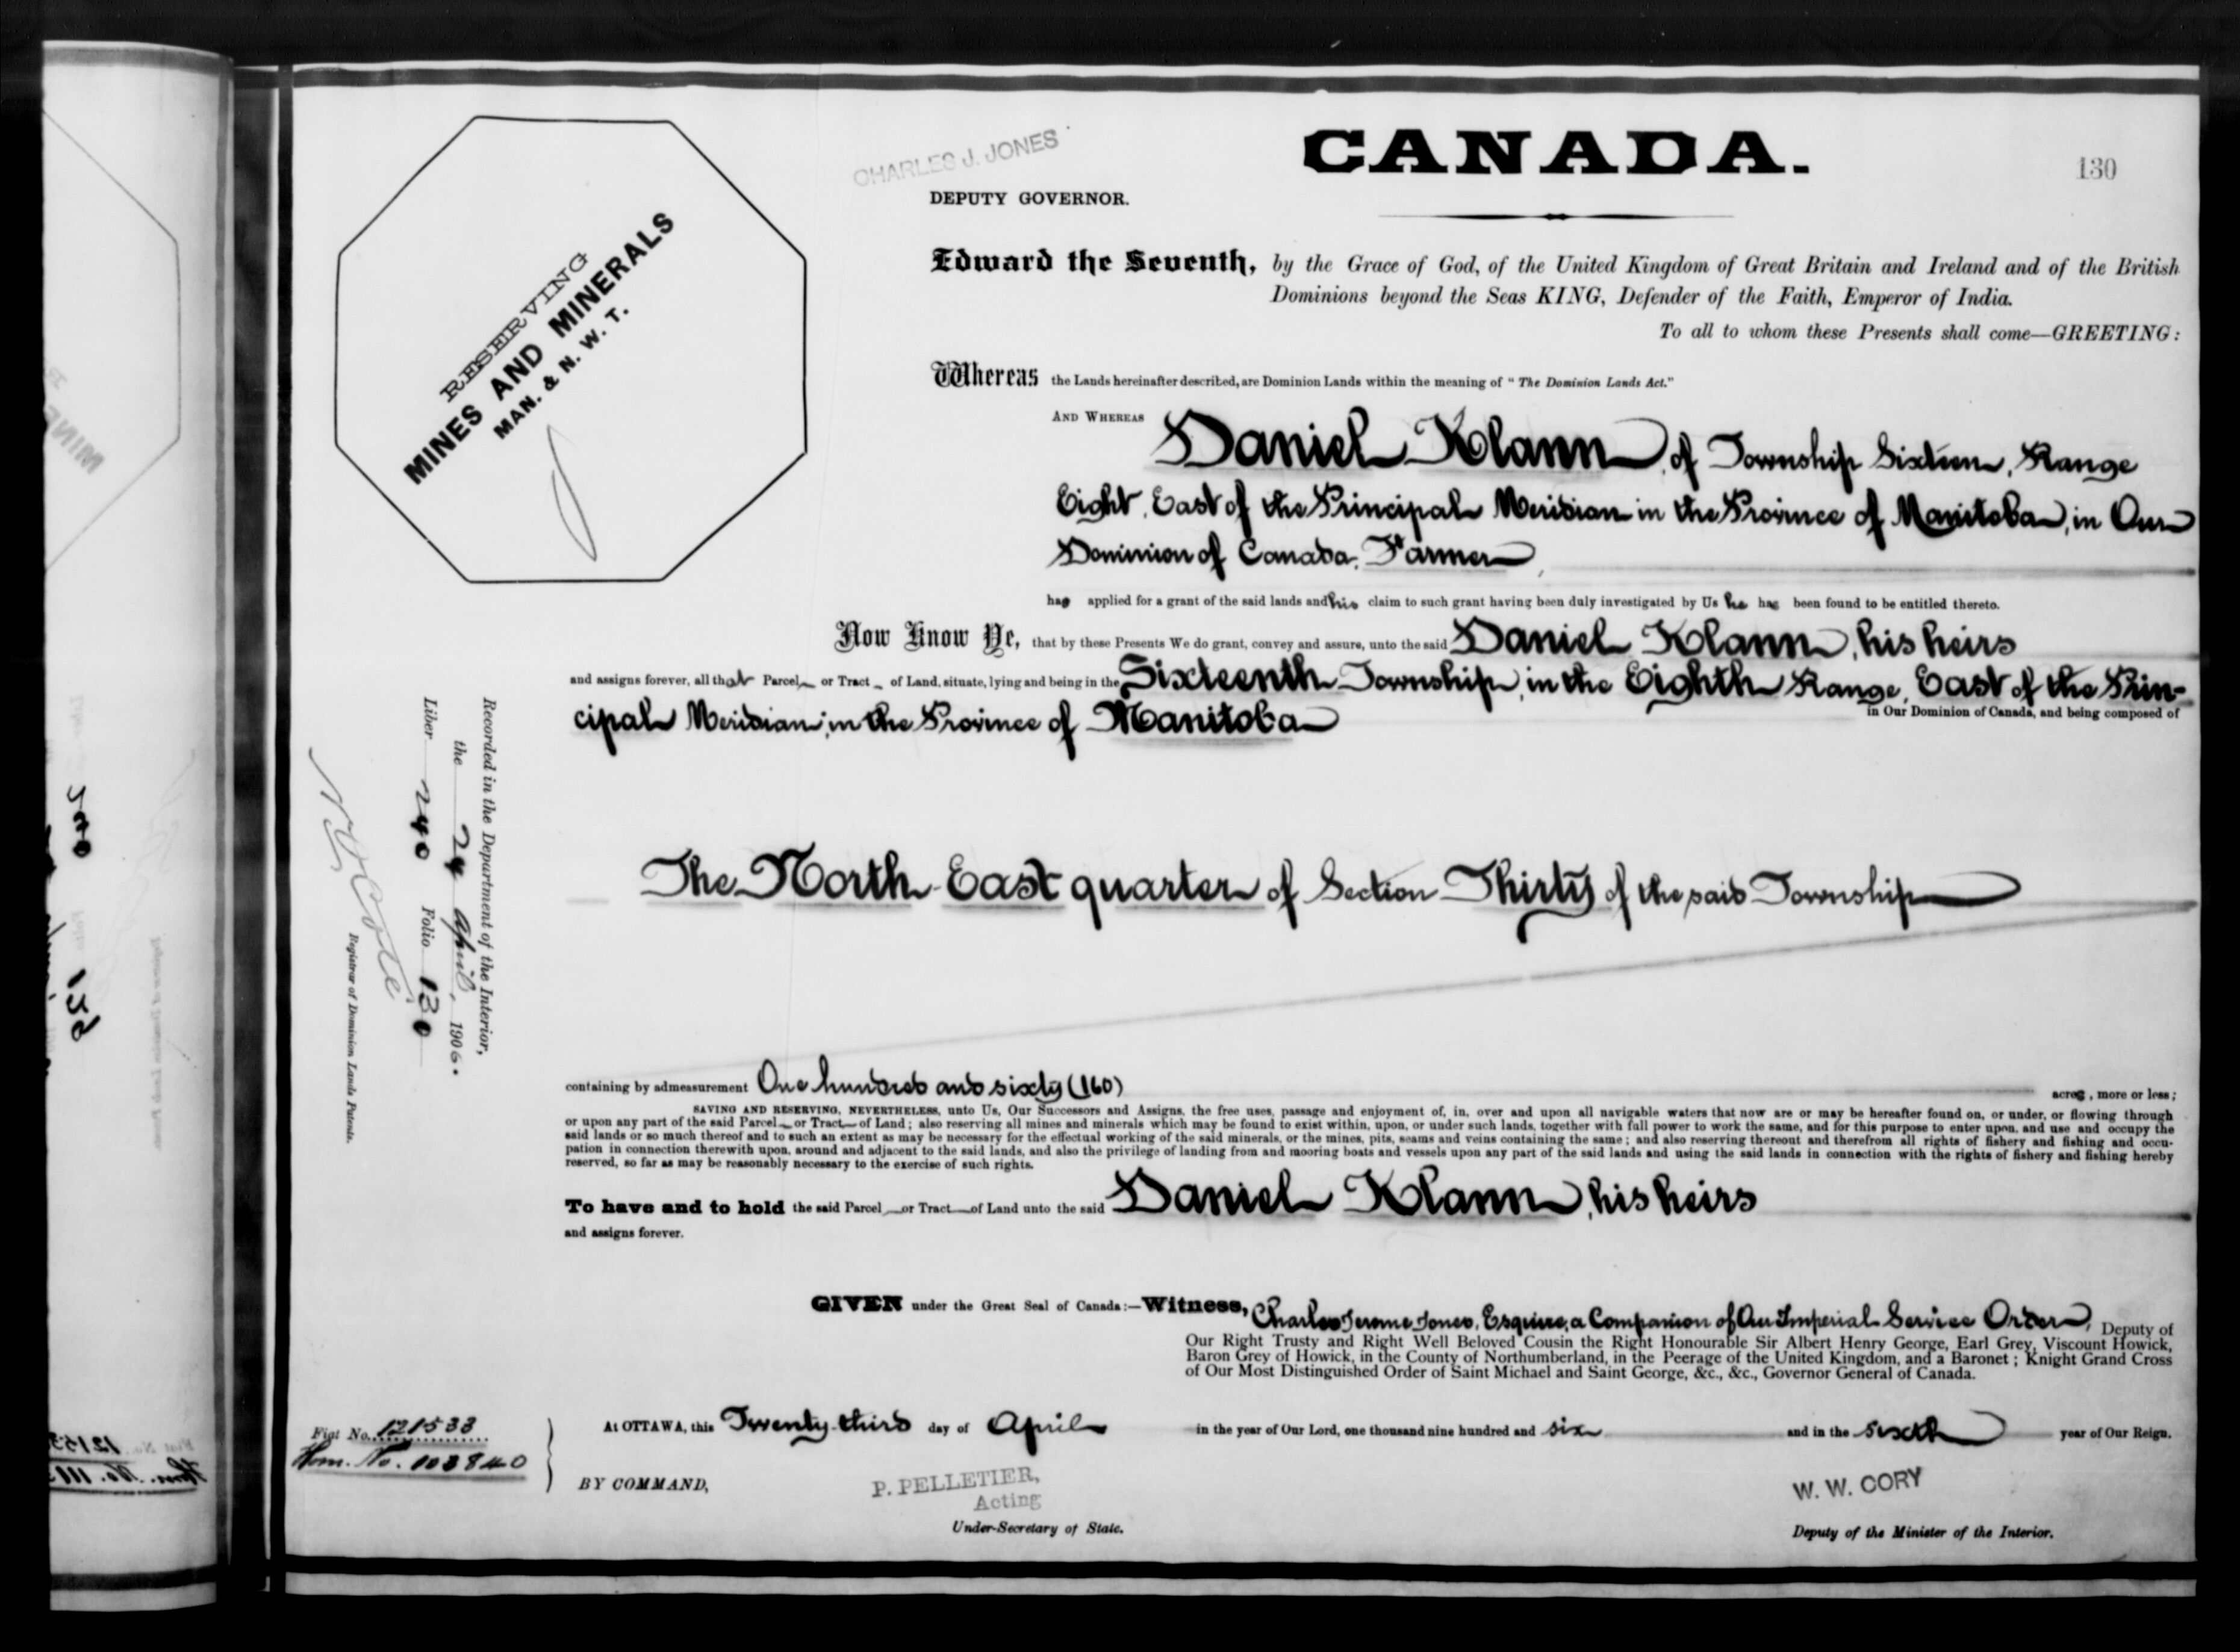 CANADA.
130
CHARLES J. JONES
DEPUTY GOVERNOR.
RESERVING
MINES AND MINERALS
MAN. & N. W. T.
Edward the Seventh, by the Grace of God, of the United Kingdom of Great Britain and Ireland and of the British
Dominions beyond the Seas KING, Defender of the Faith, Emperor of India.
To all to whom these Presents shall come—GREETING:
Whereas the Lands hereinafter described, are Dominion Lands within the meaning of "The Dominion Lands Act."
AND WHEREAS Daniel Klann, of Township Sixteen, Range
Eight, East of the Principal Meridian in the Province of Manitoba, in Our
Dominion of Canada, Farmer,
has applied for a grant of the said lands and his claim to such grant having been duly investigated by Us he has been found to be entitled thereto.
Now Know Ye, that by these Presents We do grant, convey and assure, unto the said Daniel Klann, his heirs
and assigns forever, all that Parcel or Tract of Land, situate, lying and being in the Sixteenth Township, in the Eighth Range, East of the Prin-
cipal Meridian, in the Province of Manitoba in Our Dominion of Canada, and being composed of
The North East quarter of Section Thirty of the said Township
containing by admeasurement One hundred and sixty (160) acres, more or less;
SAVING AND RESERVING, NEVERTHELESS, unto Us, Our Successors and Assigns, the free uses, passage and enjoyment of, in, over and upon all navigable waters that now are or may be hereafter found on, or under, or flowing through
or upon any part of the said Parcel or Tract of Land; also reserving all mines and minerals which may be found to exist within, upon, or under such lands, together with full power to work the same, and for this purpose to enter upon, and use and occupy the
said lands or so much thereof and to such an extent as may be necessary for the effectual working of the said minerals, or the mines, pits, seams and veins containing the same; and also reserving thereout and therefrom all rights of fishery and fishing and occu-
pation in connection therewith upon, around and adjacent to the said lands, and also the privilege of landing from and mooring boats and vessels upon any part of the said lands and using the said lands in connection with the rights of fishery and fishing hereby
reserved, so far as may be reasonably necessary to the exercise of such rights.
To have and to hold the said Parcel or Tract of Land unto the said Daniel Klann, his heirs
and assigns forever.
GIVEN under the Great Seal of Canada:—Witness, Charles Jerome Jones, Esquire, a Companion of Our Imperial Service Order, Deputy of
Our Right Trusty and Right Well Beloved Cousin the Right Honourable Sir Albert Henry George, Earl Grey, Viscount Howick,
Baron Grey of Howick, in the County of Northumberland, in the Peerage of the United Kingdom, and a Baronet; Knight Grand Cross
of Our Most Distinguished Order of Saint Michael and Saint George, &c., &c., Governor General of Canada.
At OTTAWA, this Twenty-third day of April in the year of Our Lord, one thousand nine hundred and six and in the sixth year of Our Reign.
BY COMMAND,
P. PELLETIER,
Acting
Under-Secretary of State.
W. W. CORY
Deputy of the Minister of the Interior.
Fiat No. 121533
Hom. No. 103840
Recorded in the Department of the Interior,
the 24 April, 1906.
Liber 240 Folio 130
N O Coté
Registrar of Dominion Lands Patents.